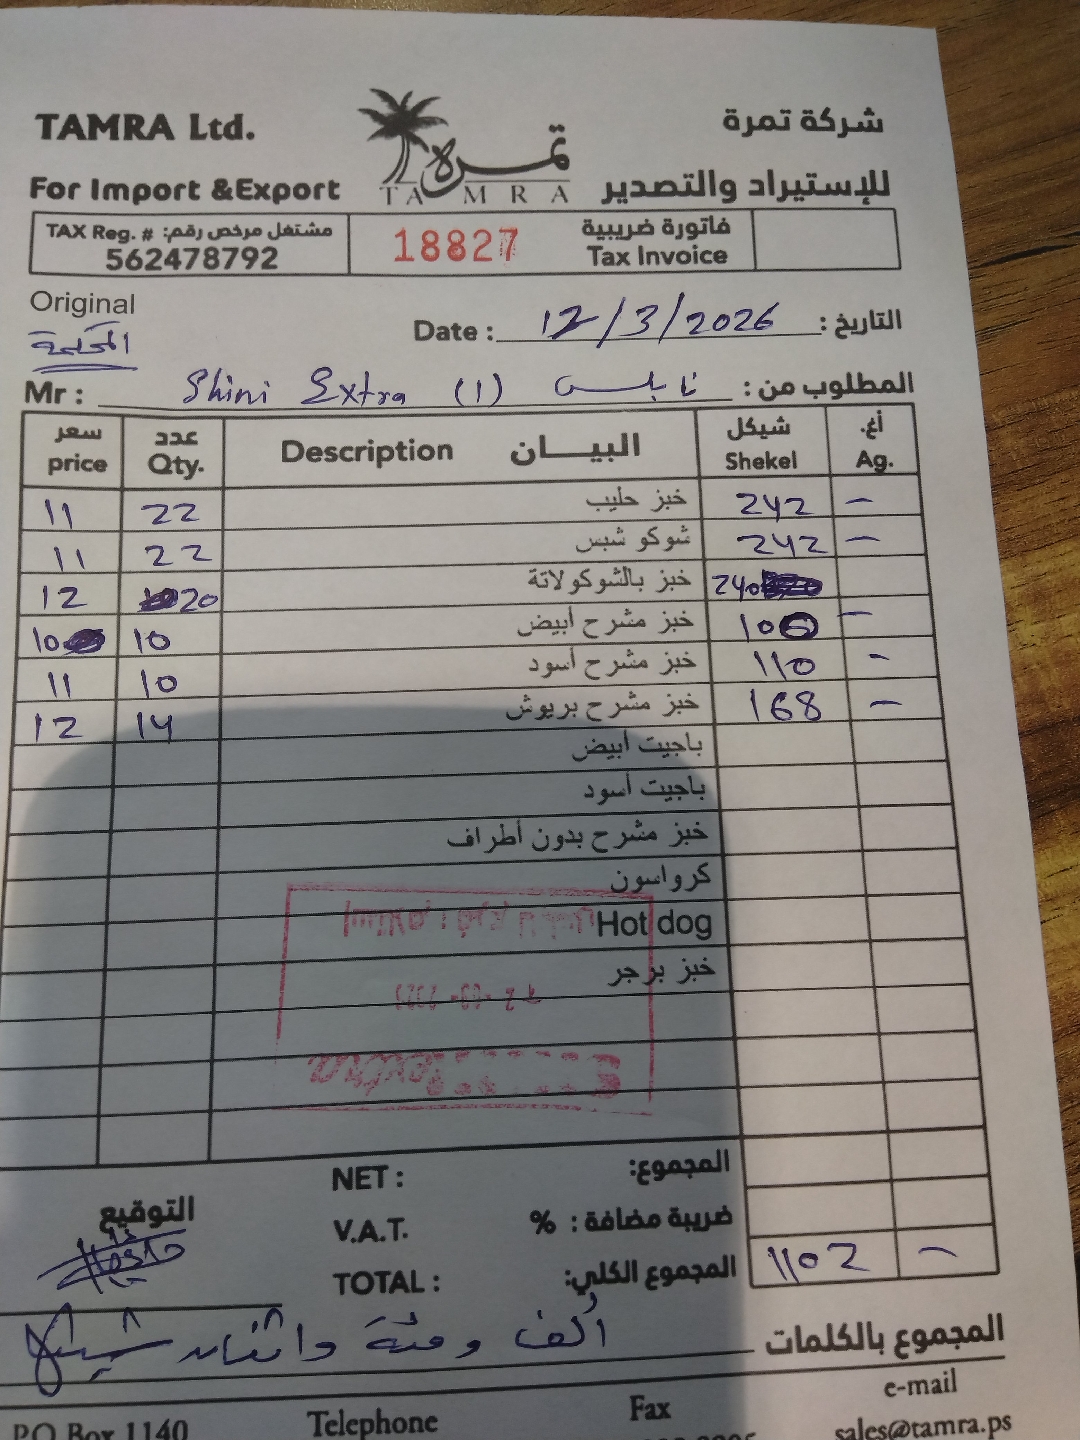 TAMRA Ltd.
شركة تمرة
تمرة
TAMRA
For Import &Export
للإستيراد والتصدير
TAX Reg. # :مشتغل مرخص رقم
562478792
18827
فاتورة ضريبية
Tax Invoice
Original
Date : 12/3/2026 التاريخ :
Mr : Shini Extra (1) نابلس المطلوب من :
سعر عدد البيــــان شيكل أغ.
price Qty. Description Shekel Ag.
11 22 خبز حليب 242 –
11 22 شوكو شبس 242 –
12 20 خبز بالشوكولاتة 240
10 10 خبز مشرح أبيض 100 –
11 10 خبز مشرح أسود 110 –
12 14 خبز مشرح بريوش 168 –
باجيت أبيض
باجيت أسود
خبز مشرح بدون أطراف
كرواسون
Hot dog
خبز برجر
NET : المجموع:
التوقيع
V.A.T. % ضريبة مضافة :
TOTAL : المجموع الكلي: 1102 –
المجموع بالكلمات ألف ومئة واثنان شيكل
PO Box 1140 Telephone Fax e-mail
sales@tamra.ps